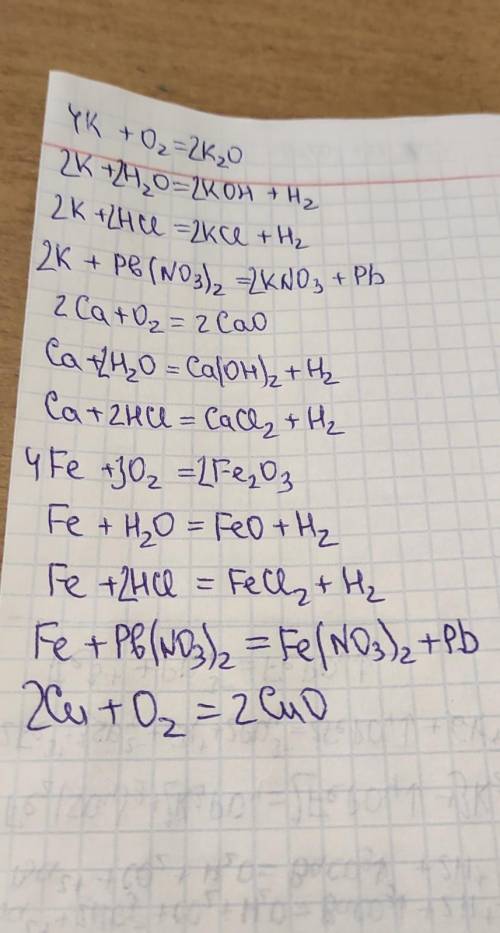 4K + O₂ = 2K₂O
2K + 2H₂O = 2KOH + H₂
2K + 2HCl = 2KCl + H₂
2K + Pb(NO₃)₂ = 2KNO₃ + Pb
2Ca + O₂ = 2CaO
Ca + 2H₂O = Ca(OH)₂ + H₂
Ca + 2HCl = CaCl₂ + H₂
4Fe + 3O₂ = 2Fe₂O₃
Fe + H₂O = FeO + H₂
Fe + 2HCl = FeCl₂ + H₂
Fe + Pb(NO₃)₂ = Fe(NO₃)₂ + Pb
2Cu + O₂ = 2CuO